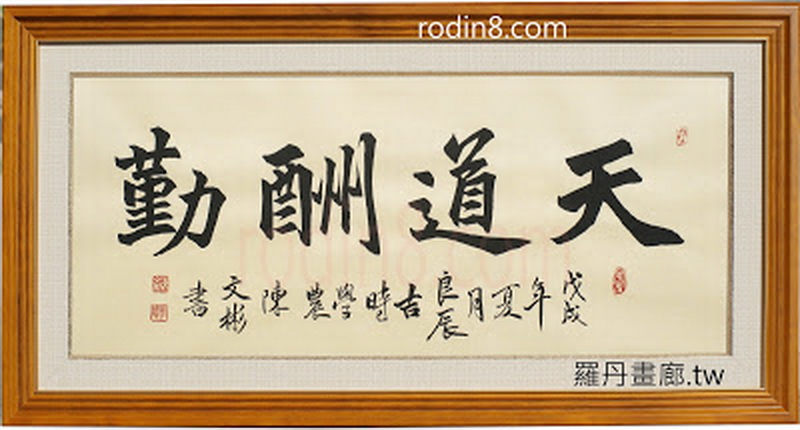 rodin8.com
天道酬勤
戊戌年夏月良辰吉時學農陳文彬書
羅丹畫廊.tw